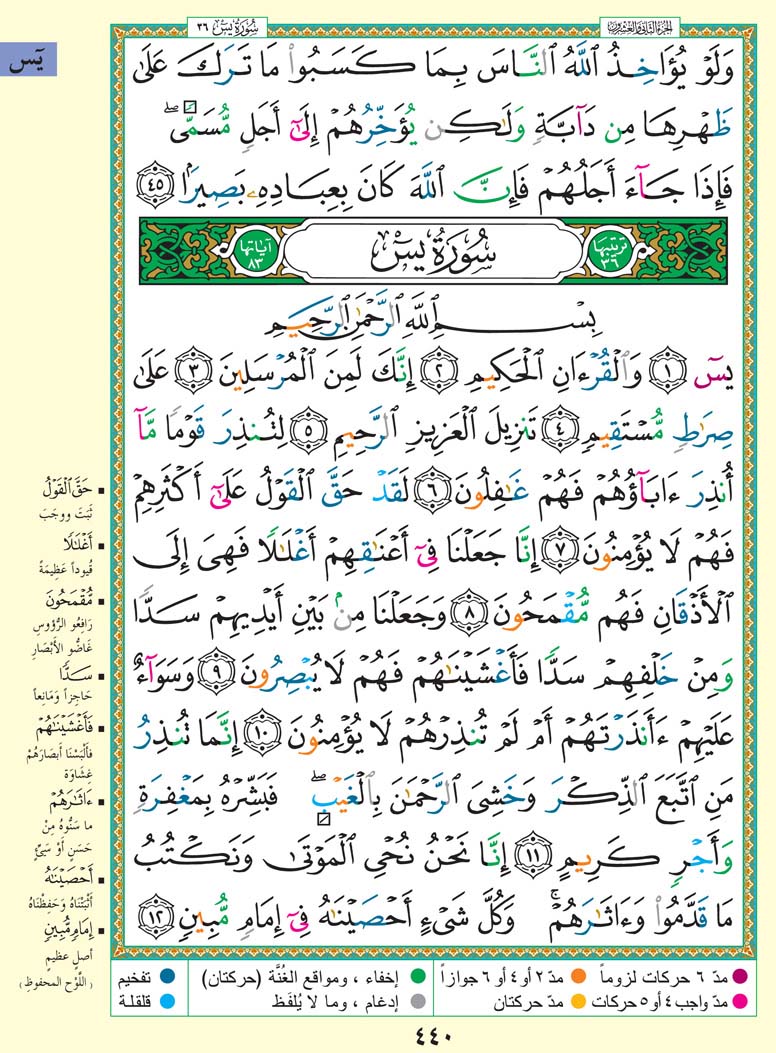 سُورَةُ يسٓ ٣٦
الجزء الثاني والعشرون
يسٓ
وَلَوۡ يُؤَاخِذُ ٱللَّهُ ٱلنَّاسَ بِمَا كَسَبُواْ مَا تَرَكَ عَلَىٰ
ظَهۡرِهَا مِن دَآبَّةٖ وَلَٰكِن يُؤَخِّرُهُمۡ إِلَىٰٓ أَجَلٖ مُّسَمّٗىۖ
فَإِذَا جَآءَ أَجَلُهُمۡ فَإِنَّ ٱللَّهَ كَانَ بِعِبَادِهِۦ بَصِيرَۢا ٤٥
ترتيبها ٣٦ سُورَةُ يسٓ آياتها ٨٣
بِسۡمِ ٱللَّهِ ٱلرَّحۡمَٰنِ ٱلرَّحِيمِ
يسٓ ١ وَٱلۡقُرۡءَانِ ٱلۡحَكِيمِ ٢ إِنَّكَ لَمِنَ ٱلۡمُرۡسَلِينَ ٣ عَلَىٰ
صِرَٰطٖ مُّسۡتَقِيمٖ ٤ تَنزِيلَ ٱلۡعَزِيزِ ٱلرَّحِيمِ ٥ لِتُنذِرَ قَوۡمٗا مَّآ
أُنذِرَ ءَابَآؤُهُمۡ فَهُمۡ غَٰفِلُونَ ٦ لَقَدۡ حَقَّ ٱلۡقَوۡلُ عَلَىٰٓ أَكۡثَرِهِمۡ
فَهُمۡ لَا يُؤۡمِنُونَ ٧ إِنَّا جَعَلۡنَا فِيٓ أَعۡنَٰقِهِمۡ أَغۡلَٰلٗا فَهِيَ إِلَى
ٱلۡأَذۡقَانِ فَهُم مُّقۡمَحُونَ ٨ وَجَعَلۡنَا مِنۢ بَيۡنِ أَيۡدِيهِمۡ سَدّٗا
وَمِنۡ خَلۡفِهِمۡ سَدّٗا فَأَغۡشَيۡنَٰهُمۡ فَهُمۡ لَا يُبۡصِرُونَ ٩ وَسَوَآءٌ
عَلَيۡهِمۡ ءَأَنذَرۡتَهُمۡ أَمۡ لَمۡ تُنذِرۡهُمۡ لَا يُؤۡمِنُونَ ١٠ إِنَّمَا تُنذِرُ
مَنِ ٱتَّبَعَ ٱلذِّكۡرَ وَخَشِيَ ٱلرَّحۡمَٰنَ بِٱلۡغَيۡبِۖ فَبَشِّرۡهُ بِمَغۡفِرَةٖ
وَأَجۡرٖ كَرِيمٍ ١١ إِنَّا نَحۡنُ نُحۡيِ ٱلۡمَوۡتَىٰ وَنَكۡتُبُ
مَا قَدَّمُواْ وَءَاثَٰرَهُمۡۚ وَكُلَّ شَيۡءٍ أَحۡصَيۡنَٰهُ فِيٓ إِمَامٖ مُّبِينٖ ١٢
حَقَّ ٱلۡقَوۡلُ
ثَبَتَ ووجَبَ
أَغۡلَٰلٗا
قُيوداً عَظِيمَةً
مُّقۡمَحُونَ
رَافِعُو الرُّؤوسِ
غَاضُّو الأَبْصَارِ
سَدّٗا
حَاجِزاً وَمَانِعاً
فَأَغۡشَيۡنَٰهُمۡ
فَأَلْبَسْنَا أَبصَارَهُمْ
غِشَاوَة
ءَاثَٰرَهُمۡ
ما سَنُّوهُ مِنْ
حَسَنٍ أَوْ سَيِّئٍ
أَحۡصَيۡنَٰهُ
أَثْبَتْنَاهُ وَحَفِظْنَاهُ
إِمَامٖ مُّبِينٖ
أصلٍ عظيمٍ
(اللَّوْحِ المحفوظِ)
مدّ ٦ حركات لزوماً مدّ ٢ أو ٤ أو ٦ جوازاً إخفاء ، ومواقع الغُنَّة (حركتان) تفخيم
مدّ واجب ٤ أو ٥ حركات مدّ حركتان إدغام ، وما لا يُلفَظ قلقلة
٤٤٠